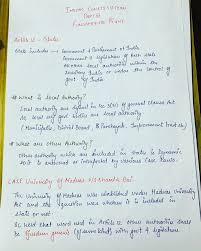 INDIAN CONSTITUTION
PART III
FUNDAMENTAL RIGHT
Article 12 - State
State includes - Government & Parliament of India
Government & legislature of each state
local authorities within the
territory India or under the control
of govt of India
* What is Local Authority?
Local authority are defined in Sec 3(31) of general Clause Act
as local self govt bodies are local authority.
(Municipality, District Board, Panchayat, Improvement trust etc)
* What are other Authority?
Other authority which are included in state is Dynamic
it is enhanced or interpreted by various Case laws.
CASE University of Madras v/s Shantha Bai
The University of Madras was established under Madras University
Act and the question was whether it is included in
state or not.
SC held that word used in Article 12 other authorities shall
be Ejusdem generis (of same kind) with govt & legislature.